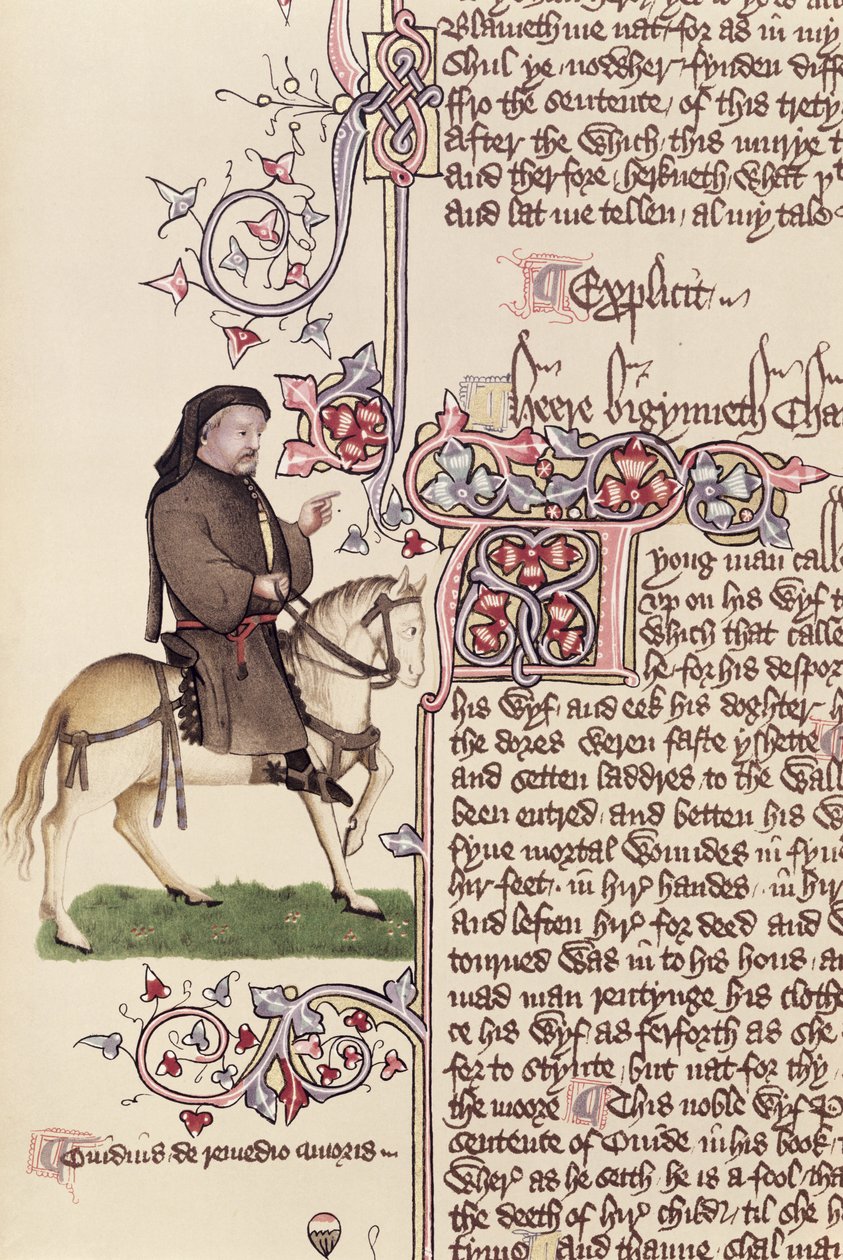 Blameth me nat / for as in my
Shul ye / nowher / fynden diffe
ffro the sentence / of this trety
After the which / this murye t
And therfore / herkneth / what y^t
And lat me tellen / al my tale
Explicit
Heere bigynneth Chau
yong man calle
up on his wyf t
which that calle
he / for his despor
his wyf / and eek his doghter h
the dores weren faste yshette
and setten laddres / to the wall
been entred / and betten his w
fyue mortal woundes in syn
hir feet / in hir handes / in hir
and leften hir for deed and w
tourned was in to his hous / a
mad man rentynge his clothe
ce his wyf / as ferforth as she
for to stynte / but nat for thy
the moore This noble wyf P
Ouidius de remedio amoris
sentence of Ouide / in his book
wher as he seith / he is a fool / tha
the deeth of hir child / til she h
tyme And thanne shal man